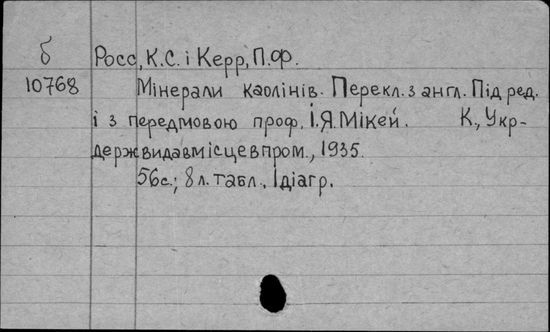 б
10768
Росс, К.С. і Керр, П.Ф.
Мінерали каолінів. Перекл. з англ. Під ред.
і з передмовою проф. І.Я.Мікей. К., Укр-
держвидавмісцевпром., 1935.
56с.; 8 л. табл., 1 діагр.